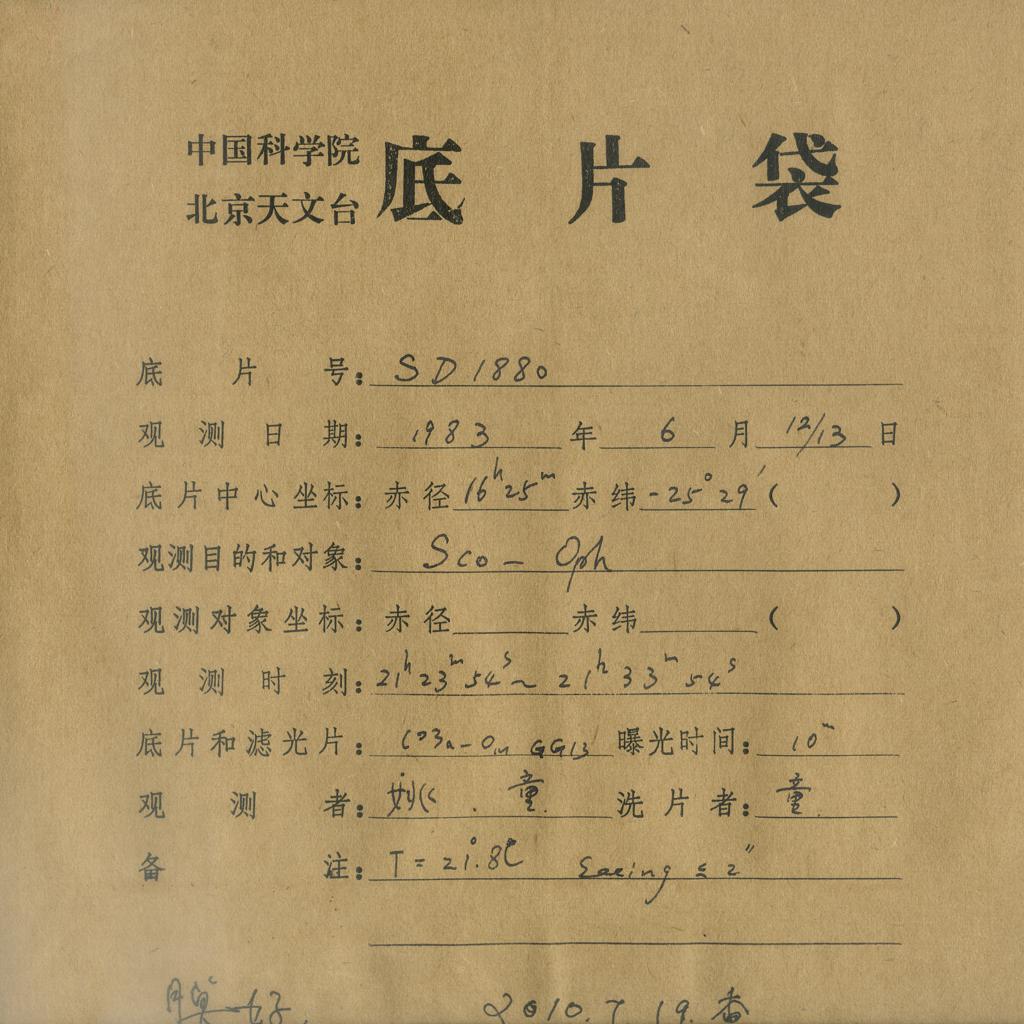 中国科学院
北京天文台 底片袋
底片号: SD1880
观测日期: 1983 年 6 月 12/13 日
底片中心坐标: 赤径 16h25m 赤纬 -25°29′ ( )
观测目的和对象: Sco - Oph
观测对象坐标: 赤径 赤纬 ( )
观测时刻: 21h23m54s ~ 21h33m54s
底片和滤光片: 103a-O GG13 曝光时间: 10m
观测者: 童 洗片者: 童
备注: T = 21.8℃ Seeing ≤ 2″
2010.7.19.